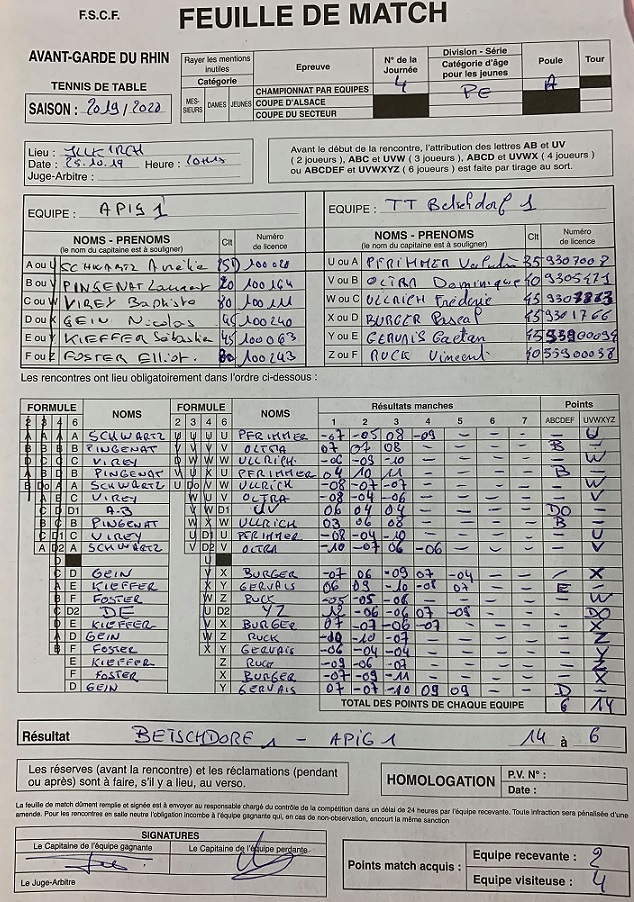 F.S.C.F.
FEUILLE DE MATCH
AVANT-GARDE DU RHIN
TENNIS DE TABLE
SAISON : 2019 / 2020
Rayer les mentions inutiles
Catégorie
MES-SIEURS DAMES JEUNES
Epreuve
CHAMPIONNAT PAR EQUIPES
COUPE D'ALSACE
COUPE DU SECTEUR
N° de la Journée
4
Division - Série
Catégorie d'âge pour les jeunes
PE
Poule
A
Tour
Lieu : ILLKIRCH
Date : 25.10.19 Heure : 20H15
Juge-Arbitre :
Avant le début de la rencontre, l'attribution des lettres AB et UV
( 2 joueurs ), ABC et UVW ( 3 joueurs ), ABCD et UVWX ( 4 joueurs )
ou ABCDEF et UVWXYZ ( 6 joueurs ) est faite par tirage au sort.
EQUIPE : APIG 1
EQUIPE : TT Betschdorf 1
NOMS - PRENOMS
(le nom du capitaine est à souligner)
Clt
Numéro de licence
NOMS - PRENOMS
(le nom du capitaine est à souligner)
Clt
Numéro de licence
A ou U SCHWARTZ Amélie
B ou V PINGENAT Laurent 100164
C ou W VIREY Baptiste 100111
D ou X GEIN Nicolas 45 100240
E ou Y KIEFFER Sébastien 45 100063
F ou Z FOSTER Elliot 100243
U ou A PFRIMMER
V ou B OLTRA Dominique
W ou C ULLRICH Frédéric
X ou D BURGER Pascal 45 9301766
Y ou E GERVAIS Gaetan
Z ou F RUCK Vincent
Les rencontres ont lieu obligatoirement dans l'ordre ci-dessous :
FORMULE NOMS FORMULE NOMS Résultats manches Points
2 3 4 6 2 3 4 6 1 2 3 4 5 6 7 ABCDEF UVWXYZ
SCHWARTZ PFRIMMER -07 -05 08 -09 - - - - U
PINGENAT OLTRA 07 07 08 - - - - B -
VIREY ULLRICH -06 -03 -10 - - - - - W
PINGENAT PFRIMMER 04 10 11 - - - - B -
SCHWARTZ ULLRICH -08 -07 -07 - - - - - W
VIREY OLTRA -08 -04 -06 - - - - - V
A.B UV 06 04 04 - - - - DO -
PINGENAT ULLRICH 03 06 08 - - - - B -
VIREY PFRIMMER -08 -04 -10 - - - - - U
SCHWARTZ OLTRA -10 -07 06 -06 - - - - V
GEIN BURGER -07 06 -09 07 -04 - - X
KIEFFER GERVAIS 06 09 -10 -08 07 - - E -
FOSTER RUCK -05 -05 -08 - - - -
DE YZ -06 -06 07 -09 - - - DO
KIEFFER BURGER 07 -07 -06 -07 - - - - X
GEIN RUCK -10 -07 - - - - - Z
FOSTER GERVAIS -06 -04 -04 - - - - - Y
KIEFFER RUCK -09 -06 -07 - - - - - Z
FOSTER BURGER -07 -09 -11 - - - - - X
GEIN GERVAIS 07 -07 -10 09 09 - - D -
TOTAL DES POINTS DE CHAQUE EQUIPE 6 14
Résultat BETSCHDORF 1 - APIG 1 14 à 6
Les réserves (avant la rencontre) et les réclamations (pendant
ou après) sont à faire, s'il y a lieu, au verso.
HOMOLOGATION
P.V. N° :
Date :
La feuille de match dûment remplie et signée est à envoyer au responsable chargé du contrôle de la compétition dans un délai de 24 heures par l'équipe recevante. Toute infraction sera pénalisée d'une
amende. Pour les rencontres en salle neutre l'obligation incombe à l'équipe gagnante qui, en cas de non-observation, encourt la même sanction
SIGNATURES
Le Capitaine de l'équipe gagnante
Le Capitaine de l'équipe perdante
Le Juge-Arbitre
Points match acquis :
Equipe recevante : 2
Equipe visiteuse : 4